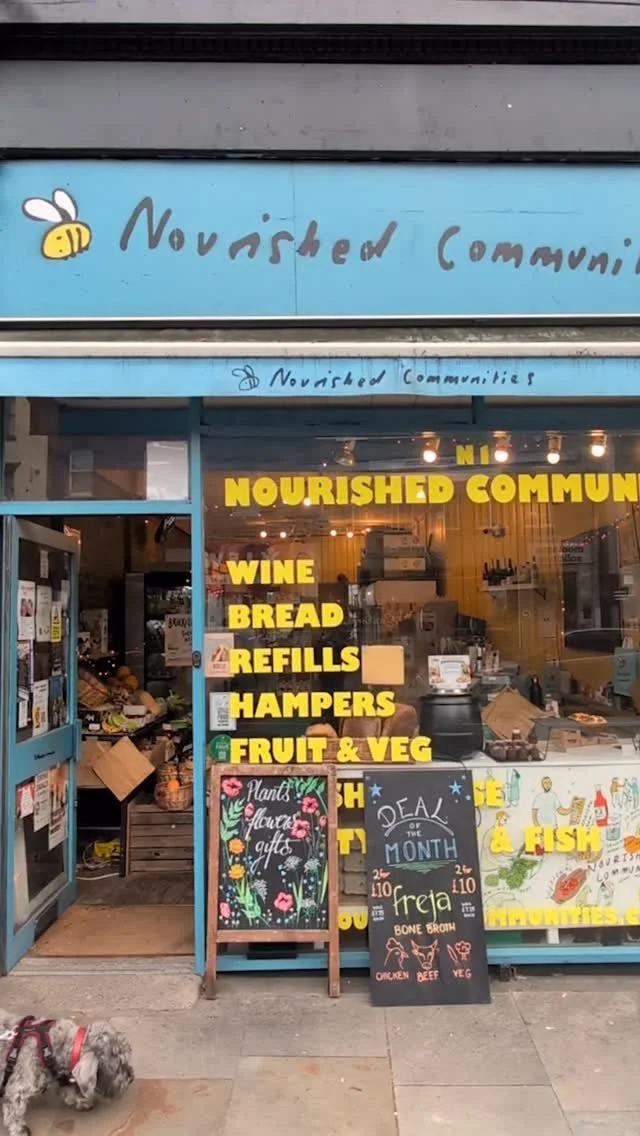 Nourished Communi
Nourished Communities
N1
NOURISHED COMMUN
WINE
BREAD
REFILLS
HAMPERS
FRUIT & VEG
SH
SE
TY
& FISH
OU
MMUNITIES.C
Plants
flowers
gifts
DEAL
OF THE
MONTH
2 for
£10
2 for
£10
freja
BONE BROTH
CHICKEN BEEF VEG
NOURISH
COMMUN